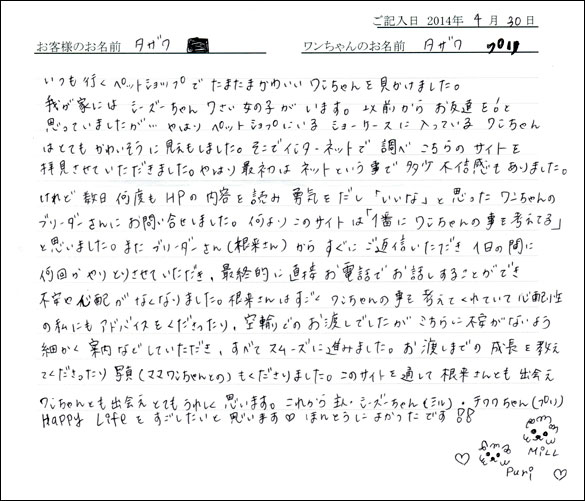 ご記入日 2014年 4 月 30 日
お客様のお名前 タザワ ワンちゃんのお名前 タザワ プリ
いつも行くペットショップでたまたまかわいいワンちゃんを見かけました。
我が家にはシーズーちゃん7さい女の子がいます。以前からお友達を!と
思っていましたが… やはりペットショップにいるショーケースに入っているワンちゃん
はとてもかわいそうに見えもしました。そこでインターネットで調べこちらのサイトを
拝見させていただきました。やはり最初はネットという事で多少不信感もありました。
けれど数日何度もHPの内容を読み勇気をだし「いいな」と思ったワンちゃんの
ブリーダーさんにお問い合せしました。何よりこのサイトは「1番にワンちゃんの事を考えてる」
と思いました。またブリーダーさん(根来さん)からすぐにご返信いただき1日の間に
何回かやりとりさせていただき、最終的に直接お電話でお話しすることができ
不安や心配がなくなりました。根来さんはすごくワンちゃんの事を考えてくれていて心配性
の私にもアドバイスをくださったり、空輸でのお渡しでしたがこちらに不安がないよう
細かく案内などしていただき、すべてスムーズに進みました。お渡しまでの成長を教え
てくださったり写真(ママワンちゃんとの)もくださりました。このサイトを通して根来さんとも出会え
ワンちゃんとも出会えとてもうれしく思います。これから主人・シーズーちゃん(ミル)・チワワちゃん(プリ)
Happy Lifeをすごしたいと思います♡ ほんとうによかったです!!
MiLL
Puri